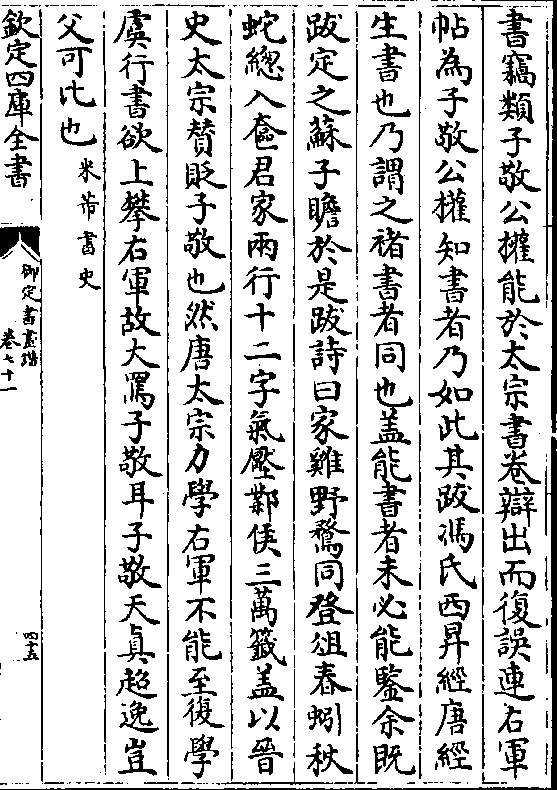 書竊類子敬公權能於太宗書卷辯出而復誤連右軍
帖為子敬公權知書者乃如此其跋馮氏西昇經唐經
生書也乃謂之褚書者同也蓋能書者未必能鑒余既
跋定之蘇子瞻於是跋詩曰家雞野鶩同登俎春蚓秋
蛇總入奩君家兩行十二字氣壓鄴侯三萬籤蓋以晉
史太宗贊貶子敬也然唐太宗力學右軍不能至復學
虞行書欲上攀右軍故大罵子敬耳子敬天真超逸豈
父可比也 米芾書史
欽定四庫全書
御定書畫譜
卷七十一
四五